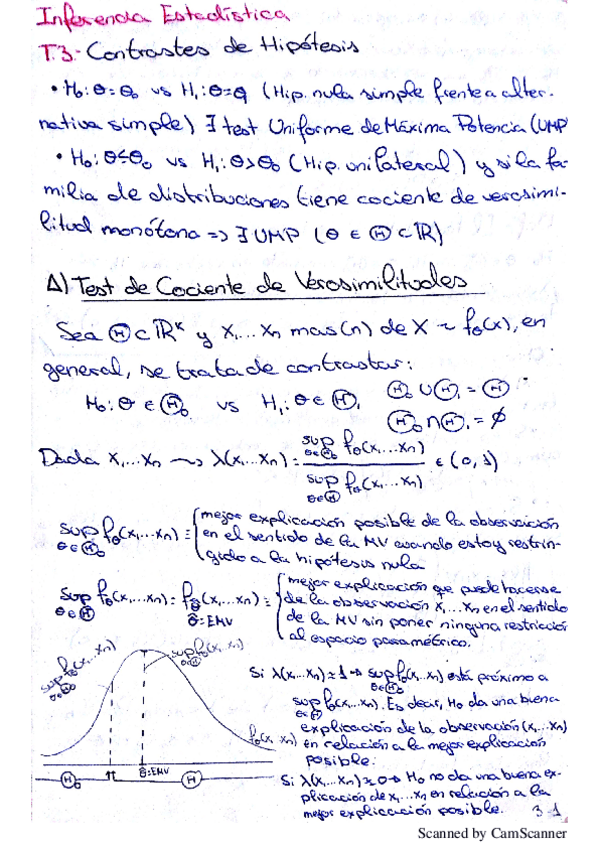 Inferencia Estadística
T.3.- Contrastes de Hipótesis
• H₀: θ=θ₀ vs H₁: θ=θ₁ (Hip. nula simple frente a alter-
nativa simple) ∃ test Uniforme de Máxima Potencia (UMP
• H₀: θ≤θ₀ vs H₁: θ>θ₀ (Hip. unilateral) y si la fa-
milia de distribuciones tiene cociente de verosimi-
litud monótona => ∃ UMP (θ ∈ Θ ⊂ ℝ)
A) Test de Cociente de Verosimilitudes
Sea Θ ⊂ ℝᵏ y X₁,... Xₙ mas(n) de X ~ f_θ(x), en
general, se trata de contrastar:
H₀: θ ∈ Θ₀ vs H₁: θ ∈ Θ₁ Θ₀ ∪ Θ₁ = Θ
Θ₀ ∩ Θ₁ = ∅
Dada X₁,... Xₙ ⇝ λ(x₁,... xₙ) = sup_{θ∈Θ₀} f_θ(x₁,... xₙ) / sup_{θ∈Θ} f_θ(x₁,... xₙ) ∈ (0, 1)
sup_{θ∈Θ₀} f_θ(x₁,... xₙ) ≡ { mejor explicación posible de la observación
en el sentido de la MV cuando estoy restrin-
gido a la hipótesis nula
sup_{θ∈Θ} f_θ(x₁,... xₙ) = f_θ̂(x₁,... xₙ) ≡ { mejor explicación que puede hacerse
de la observación x₁,... xₙ en el sentido
θ̂ = EMV de la MV sin poner ninguna restricción
al espacio paramétrico.
sup_{θ∈Θ₀} f_θ(x₁,... xₙ)
sup_{θ∈Θ} f_θ(x₁,... xₙ)
f_θ(x₁,... xₙ)
Θ₀ θ̂=EMV Θ
Si λ(x₁,... xₙ) ≈ 1 → sup_{θ∈Θ₀} f_θ(x₁,... xₙ) está próximo a
sup_{θ∈Θ} f_θ(x₁,... xₙ). Es decir, H₀ da una buena
explicación de la observación (x₁,... xₙ)
en relación a la mejor explicación
posible.
Si λ(x₁,... xₙ) ≈ 0 → H₀ no da una buena ex-
plicación de x₁,... xₙ en relación a la
mejor explicación posible. 3-1
Scanned by CamScanner